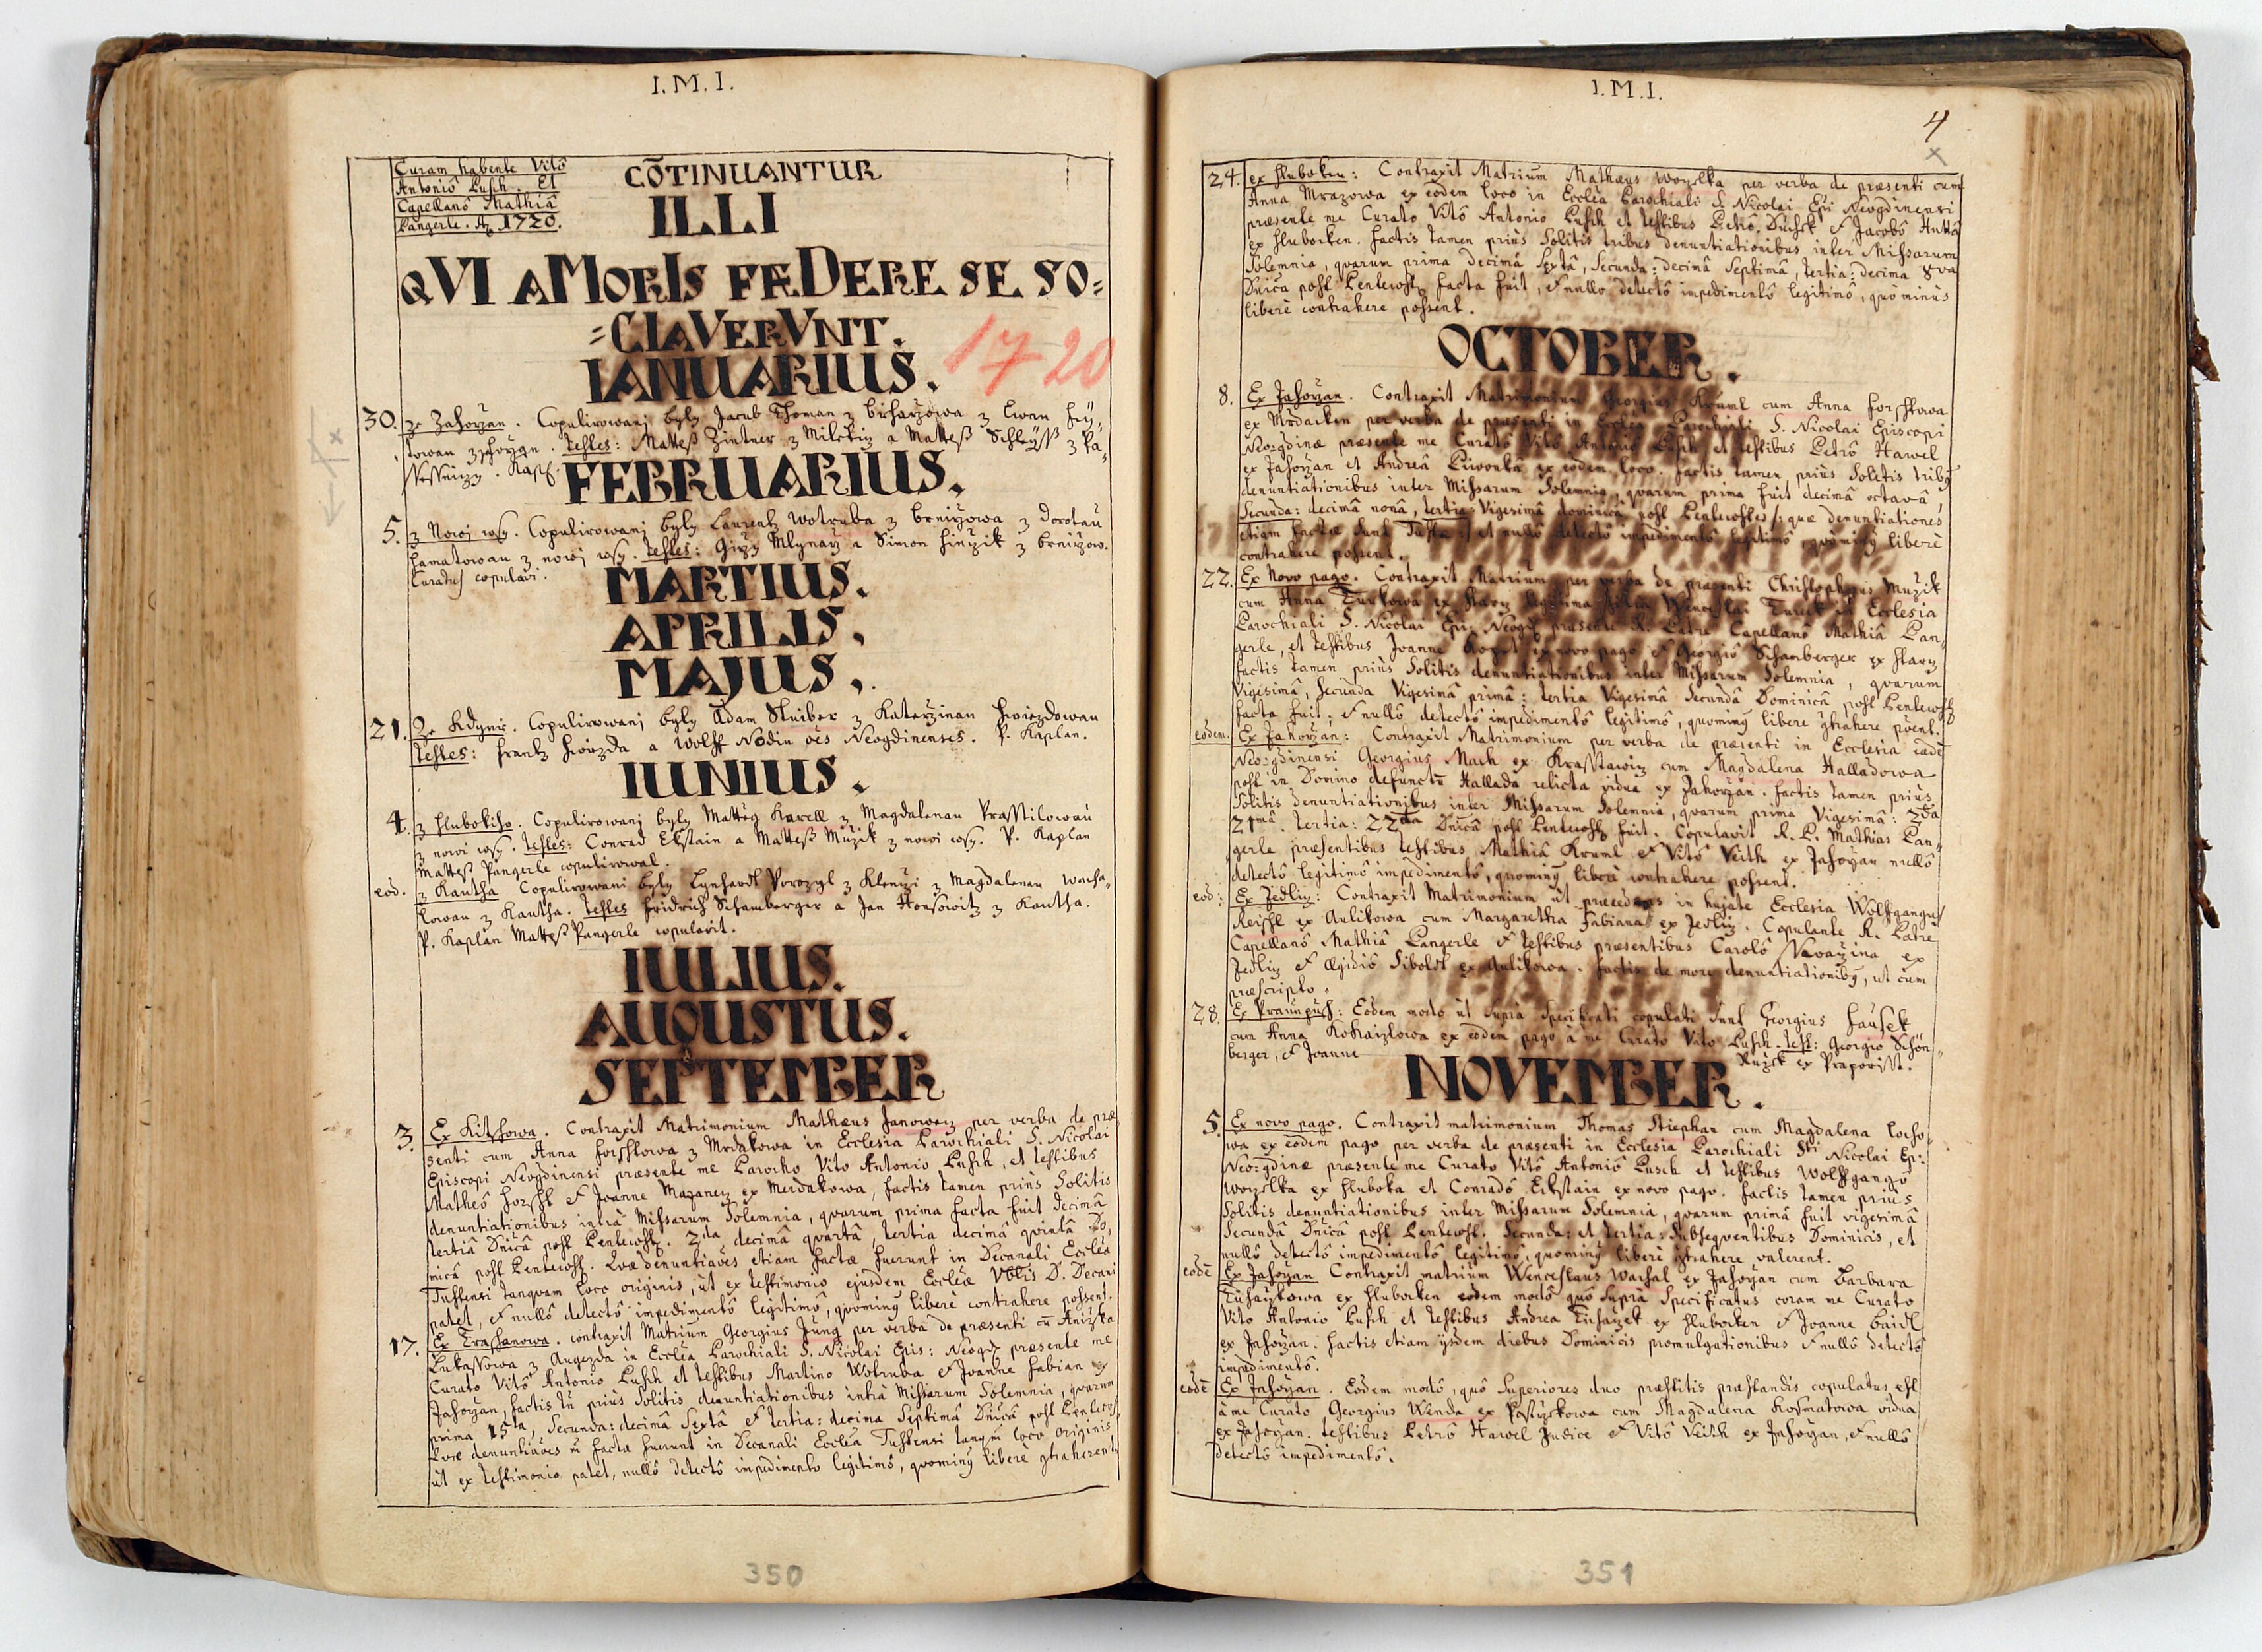 I.M.I.
Curam habente Vitô
Antoniô Pusch. Et
Capellanô Mathiâ
Pangerle. Aº 1720.
CÕTINUANTUR
ILLI
QVI AMORIS FÆDERE SE SO=
=CIAVERVNT.
1720
IANUARIUS.
30. Ze Zahorzan. Copulirowanj byly Jacub Thoman z
z Zahorzan. Testes: Matteß Zintner z Miletiz a Matteß Schleyß z
Kapl.
FEBRUARIUS.
5. z Nowj wsy. Copulirowanj byly Laurentz Wotruba z Brnirzowa z Dorotau
z nowj wsy. Testes: Girzy Mlynarz a Simon z Brnirzow.
Curatus copulavi.
MARTIUS.
APRILIS.
MAJUS.
21. Ze Kdynie. Copulirowanj byly Adam Stuiber z Katerzinau Hwiezdowau
Testes: Frantz Hwiezda a Wolff Nodin oēs Neogdinenses. P. Kaplan.
IUNIUS.
4. z Hlubokiho. Copulirowanj byly Mattey Karell z Magdalenau Prasstilowau
z nowi wsy. Testes: Conrad Ekstain a Matteß Muzik z nowi wsy. P. Kaplan
Matteß Pangerle copulirowal.
eod. z Kautha Copulirowani byly Lynhardt z Klenczi z Magdalenau Wacha=
lowau z Kautha. Testes Fridrich Schamberger a Jan z Kautha.
P. Kaplan Matteß Pangerle copulavit.
IULIUS.
AUGUSTUS.
SEPTEMBER
3. Ex Kitzhowa. Contraxit Matrimonium Mathæus Janowetz per verba de præ
senti cum Anna Forsstowa z Mrdakowa in Ecclesia Parochiali S. Nicolai
Episcopi Neogdinensi præsente me Parocho Vito Antonio Pusch, et testibus
Matheô Forscht et Joanne Mazanetz ex Merdakowa, factis tamen priùs Solitis
denuntiationibus intrà Missarum Solemnia, quarum prima facta fuit decimâ
tertiâ Dnicâ post Pentecost. 2da decimâ quartâ, tertia decimâ quintâ Do,
nicâ post Pentecost. Quæ denuntiaōes etiam factæ fuerunt in Decanali Ecclea
Tustensi tanquam loco originis, ùt ex testimonio ejusdem Ecclæ D. Decani
patet, et nullô detectô impedimentô legitimô, quominus liberè contrahere possent.
17. Ex Trahanowa. contraxit Matrium Georgius Jung per verba de præsenti cū Anizka
Lukassowa z Augezda in Ecclea Parochiali S. Nicolai Epis: Neogd: præsente me
Curato Vitô Antonio Pusch et testibus Martino Wotruba et Joanne Fabian ex
Zahorzan, factis tn priùs Solitis denuntiationibus intrà Missarum Solemnia, quarum
prima 15ta, Secunda: decimâ Sextâ et tertia: decima Septimâ Dnicâ post Pentecos.
Quæ denuntiaōes factæ fuerunt in Decanali Ecclea Tustensi tanqm loco originis
ùt ex testimonio patet, nullô detectô impedimento legitimô, quominus liberè ghaherent
350
I.M.I.
4
24. ex Hluboken: Contraxit Matrium Mathæus Woyzltka per verba de præsenti cum
Anna Mrazowa ex eôdem loco in Ecclea Parochiali S. Nicolai Epi Neogdinensi
præsente me Curato Vitô Antonio Pusch et testibus Petrô et Jacobô Hutta
ex Hluboken. factis tamen priùs Solitis tribus denuntiationibus inter Missarum
Solemnia, quarum prima decimâ Sextâ, Secunda: decimâ Septimâ, tertia: decima 8va
Dnica post Pentecost facta fuit, et nullo detectô impedimentô legitimô, quò minùs
liberè contrahere possent.
OCTOBER.
8. Ex Zahorzan. Contraxit Matrimonium Georgius Kruml cum Anna Forsstowa
ex Mrdacken per verba de præsenti in Ecclea Parochiali S. Nicolai Episcopi
Neo=gdinæ præsente me Curatô Vitô Antoniô Pusch et testibus Petrô Hawel
ex Zahorzan et Andreâ Piwonka ex eôdem loco. factis tamen priùs Solitis tribus
denuntiationibus inter Missarum Solemnia, quarum prima fuit decimâ octavâ,
Secunda: decimâ nonâ, tertia Vigesimâ dominicâ post Pentecostes /: quæ denuntiationes
etiam factæ sunt Tustæ :/ et nullô detectô impedimentô legitimô, quominus liberè
contrahere possent.
22. Ex Novo pago. Contraxit Matrium per verba de præsenti Christophorus Muzik
cum Anna Turkowa ex Starz legitima filia Wenceslai Tureck in Ecclesia
Parochiali S. Nicolai Epi: Neogd: præsente R. Patre Capellanô Mathiâ Pan=
gerle, et testibus Joanne ex novo pago et Georgiô Schamberger ex Starz
factis tamen priùs Solitis denuntiationibus inter Missarum Solemnia, quarum
Vigesimâ, Secunda Vigesimâ primâ: tertia Vigesimâ Secundâ Dominicâ post Pentecost
facta fuit; et nullô detectô impedimentô legitimô, quominus libere ghahere
eodem. Ex Zahorzan: Contraxit Matrimonium per verba de præsenti in Ecclesia eadē
Neo=gdinensi Georgius Mach ex Krasstawitz cum Magdalena Halladowa
post in Domino defunctū Hallada relicta vidua ex Zahorzan. factis tamen priùs
Solitis denuntiationibus inter Missarum Solemnia, quarum prima Vigesimâ: 2da
21mâ. tertia: 22da Dnicâ post Pentecost fuit. Copulavit R. P. Mathias Pan=
gerle præsentibus testibus Mathiâ Kruml et Vitô Veith ex Zahorzan nullô
detectô legitimô impedimentô, quominus liberè contrahere possent.
eod: Ex Jedlin: Contraxit Matrimonium ùt præcedens in hujate Ecclesia Wolffgangus
Reischl ex Aulikowa cum Margaretha Fabiana ex Jedlin. Copulante R. Patre
Capellanô Mathiâ Pangerle et testibus præsentibus Carolô ex
Jedlin et Ægidiô Siboldt ex Aulikowa. factis de more denuntiationibus, ut cum
præscripto.
28. Ex Praunpusch: Eôdem modo ùt Suprà Specificati copulati Sunt Georgius Hausek
cum Anna ex eôdem pago à me Curato Vito Pusch. Test: Georgio Schön=
berger, et Joanne Ruzek ex Praporisst.
NOVEMBER.
5. Ex novo pago. Contraxit matrimonium Thomas Stiephan cum Magdalena
wa ex eôdem pago per verba de præsenti in Ecclesia Parochiali Sti Nicolai Ep:
Neo=gdinæ præsente me Curato Vitô Antoniô Pusch et testibus Wolffgango
Woyzltka ex Hluboka et Conradô Eckstain ex novo pago. factis tamen priùs
Solitis denuntiationibus inter Missarum Solemnia, quarum primâ fuit vigesimâ
Secundâ Dnicâ post Pentecost. Secunda: et tertia: Subsequentibus Dominicis, et
nullô detectô impedimentô legitimô, quominus liberè ghahere valerent.
eodē Ex Zahorzan Contraxit matrium Wenceslaus Wachal ex Zahorzan cum Barbara
ex Hluborken eodem modô quô Suprà Specificatus coram me Curato
Vito Antonio Pusch et testibus Andrea ex Hluborken et Joanne Baidl
ex Zahorzan. factis etiam ijsdem diebus Dominicis promulgationibus et nullô detectô
impedimentô.
eodē Ex Zahorzan. Eodem modô, quô Superiores duo præstitis præstandis copulatus est
à me Curato Georgius Wenda ex cum Magdalena Kosmatowa vidua
ex Zahorzan. testibus Petrô Hawel Judice et Vitô Veith ex Zahorzan, et nullô
detectô impedimentô.
351